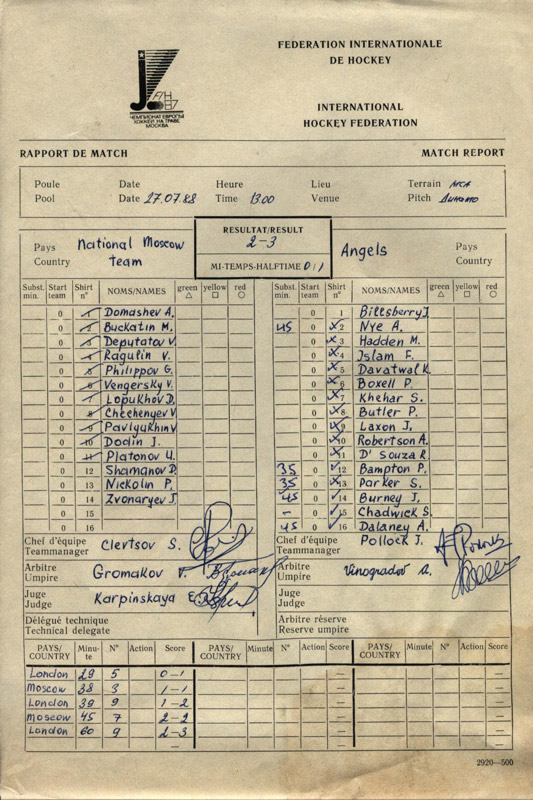 FEDERATION INTERNATIONALE
DE HOCKEY
F/H
87
ЧЕМПИОНАТ ЕВРОПЫ
ХОККЕЙ НА ТРАВЕ
МОСКВА
INTERNATIONAL
HOCKEY FEDERATION
RAPPORT DE MATCH MATCH REPORT
Poule Date Heure Lieu Terrain
Pool Date 27.07.88 Time 13.00 Venue Pitch Динамо
RESULTAT/RESULT
2-3
MI-TEMPS-HALFTIME 0/1
Pays National Moscow Angels Pays
Country team Country
Subst. min. Start team Shirt n° NOMS/NAMES green yellow red Subst. min. Start team Shirt n° NOMS/NAMES green yellow red
0 1 Domashev A. 0 1 Billsberry J.
0 2 Buckatin M. 45 0 2 Nye A.
0 3 Deputatov V. 0 3 Hadden M.
0 4 Ragulin V. 0 4 Islam F.
0 5 Philippov G. 0 5 Davatwal K.
0 6 Vengersky V. 0 6 Boxell P.
0 7 Lopukhov D. 0 7 Khehar S.
0 8 Chechenyev V. 0 8 Butler P.
0 9 Pavlyukhin V. 0 9 Laxon J.
0 10 Dodin J. 0 10 Robertson A.
0 11 Platonov U. 0 11 D'Souza R.
0 12 Shamanov D. 35 0 12 Bampton P.
0 13 Nickolin P. 35 0 13 Parker S.
0 14 Zvonaryev J. 45 0 14 Burney J.
0 15 – 0 15 Chadwick S.
0 16 45 0 16 Dalaney A.
Chef d'équipe Clertsov S. Chef d'équipe Pollock J.
Teammanager Teammanager
Arbitre Gromakov V. Arbitre Vinogradov A.
Umpire Umpire
Juge Karpinskaya E. Juge
Judge Judge
Délégué technique Arbitre réserve
Technical delegate Reserve umpire
PAYS/COUNTRY Minute N° Action Score PAYS/COUNTRY Minute N° Action Score PAYS/COUNTRY Minute N° Action Score
London 29 5 0-1 – –
Moscow 38 3 1-1 – –
London 39 9 1-2 – –
Moscow 45 7 2-2 – –
London 60 9 2-3 – –
– – –
2920—500